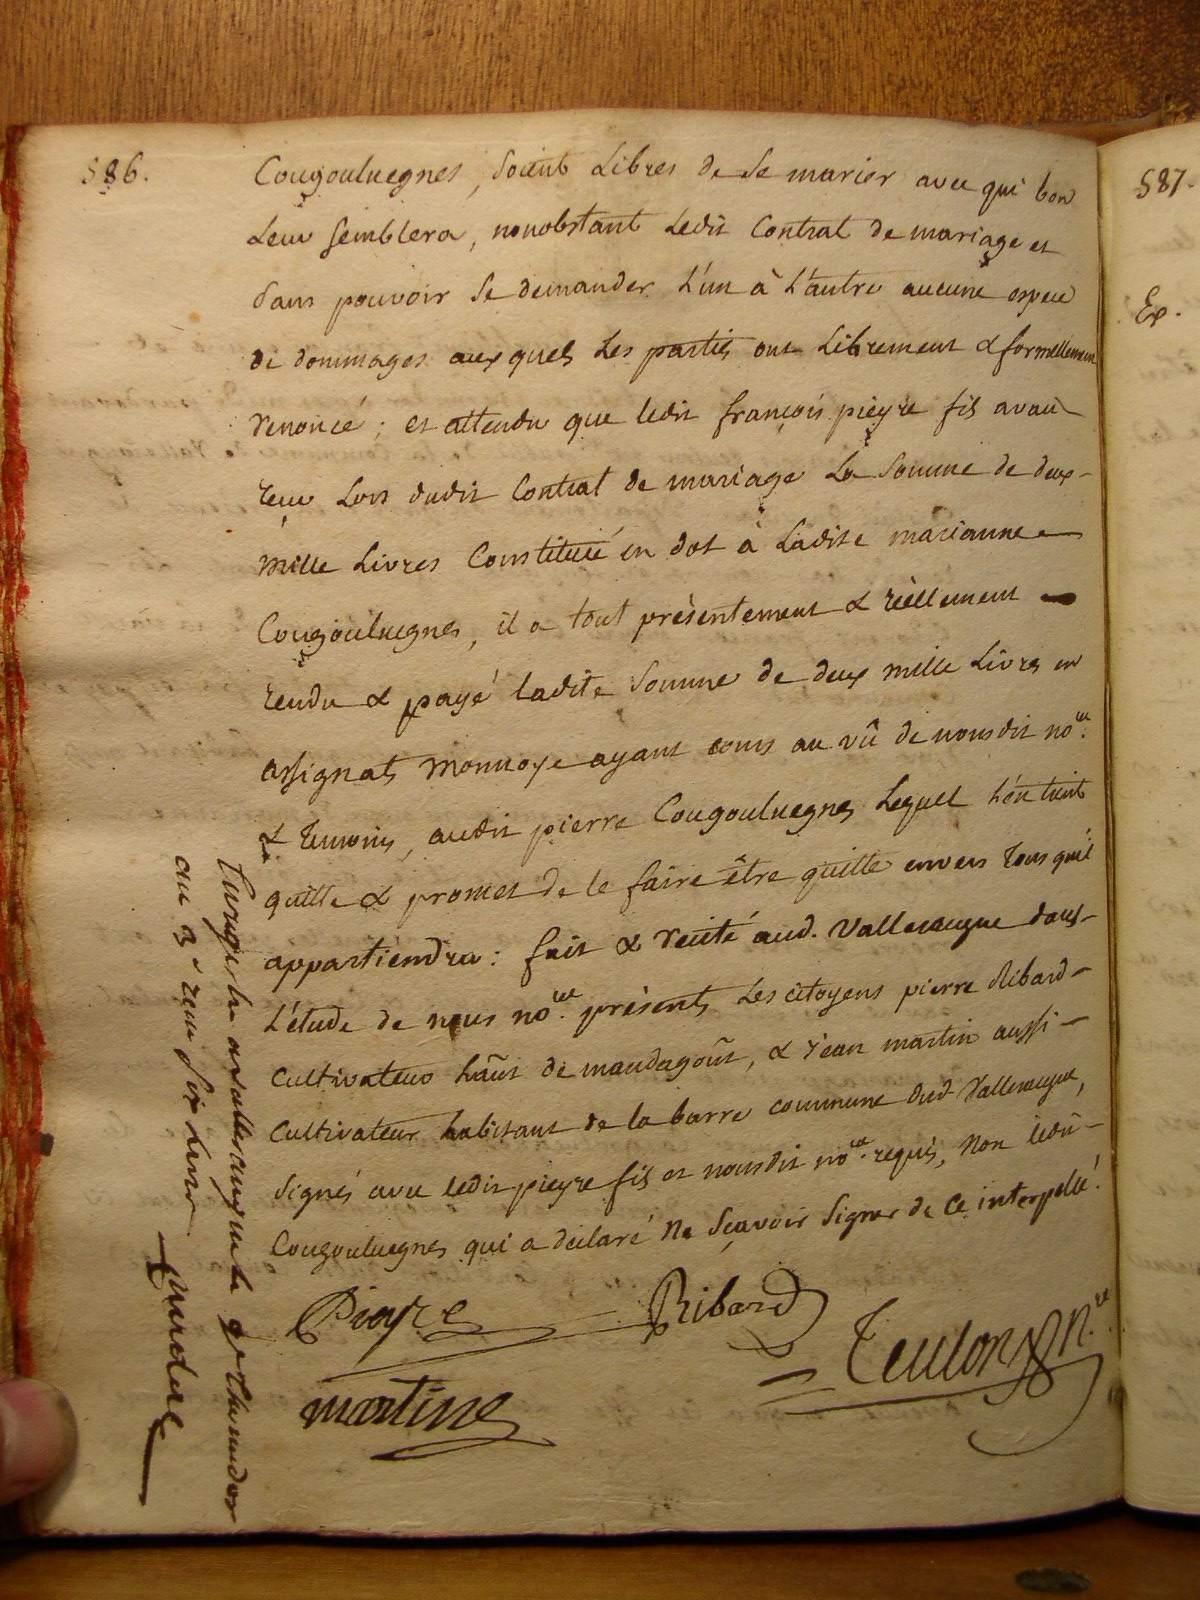 586.
Cougouluegnes, soient Libres de se marier avec qui bon
Leur semblera, nonobstant Ledit Contrat de mariage et
sans pouvoir se demander L'un à L'autre aucune espece
de dommages aux quels Les parties ont Librement & formellement
renoncé ; et attendu que ledit françois pieyre fils avait
reçu Lors dudit Contrat de mariage La Somme de deux
mille Livres Constituée en dot à Ladite marianne
Cougouluegnes, il a tout présentement & réellement
rendu & payé ladite Somme de deux mille Livres en
assignats monnoye ayant cours au vû de nousdit no.re
& temoins, audit pierre Cougouluegnes Lequel L'en tient
quitte & promet de le faire être quitte envers tous qu'il
appartiendra : fait & recité aud. Valleraugue dans
L'étude de nous no.re présents Les citoyens pierre Ribard
Cultivateur hânt de mandagoût, & jean martin aussi
Cultivateur habitant de la barre commune dud Valleraugue,
Signés avec ledit pieyre fils et nousdit no.re requis, Non ledit
Cougouluegnes qui a déclaré Ne Sçavoir Signer de Ce interpellé.
Pieyre
Ribard
martin
Teulon n.re
valleraugue le
an 3 e reçu six Livres
587.
Ex.